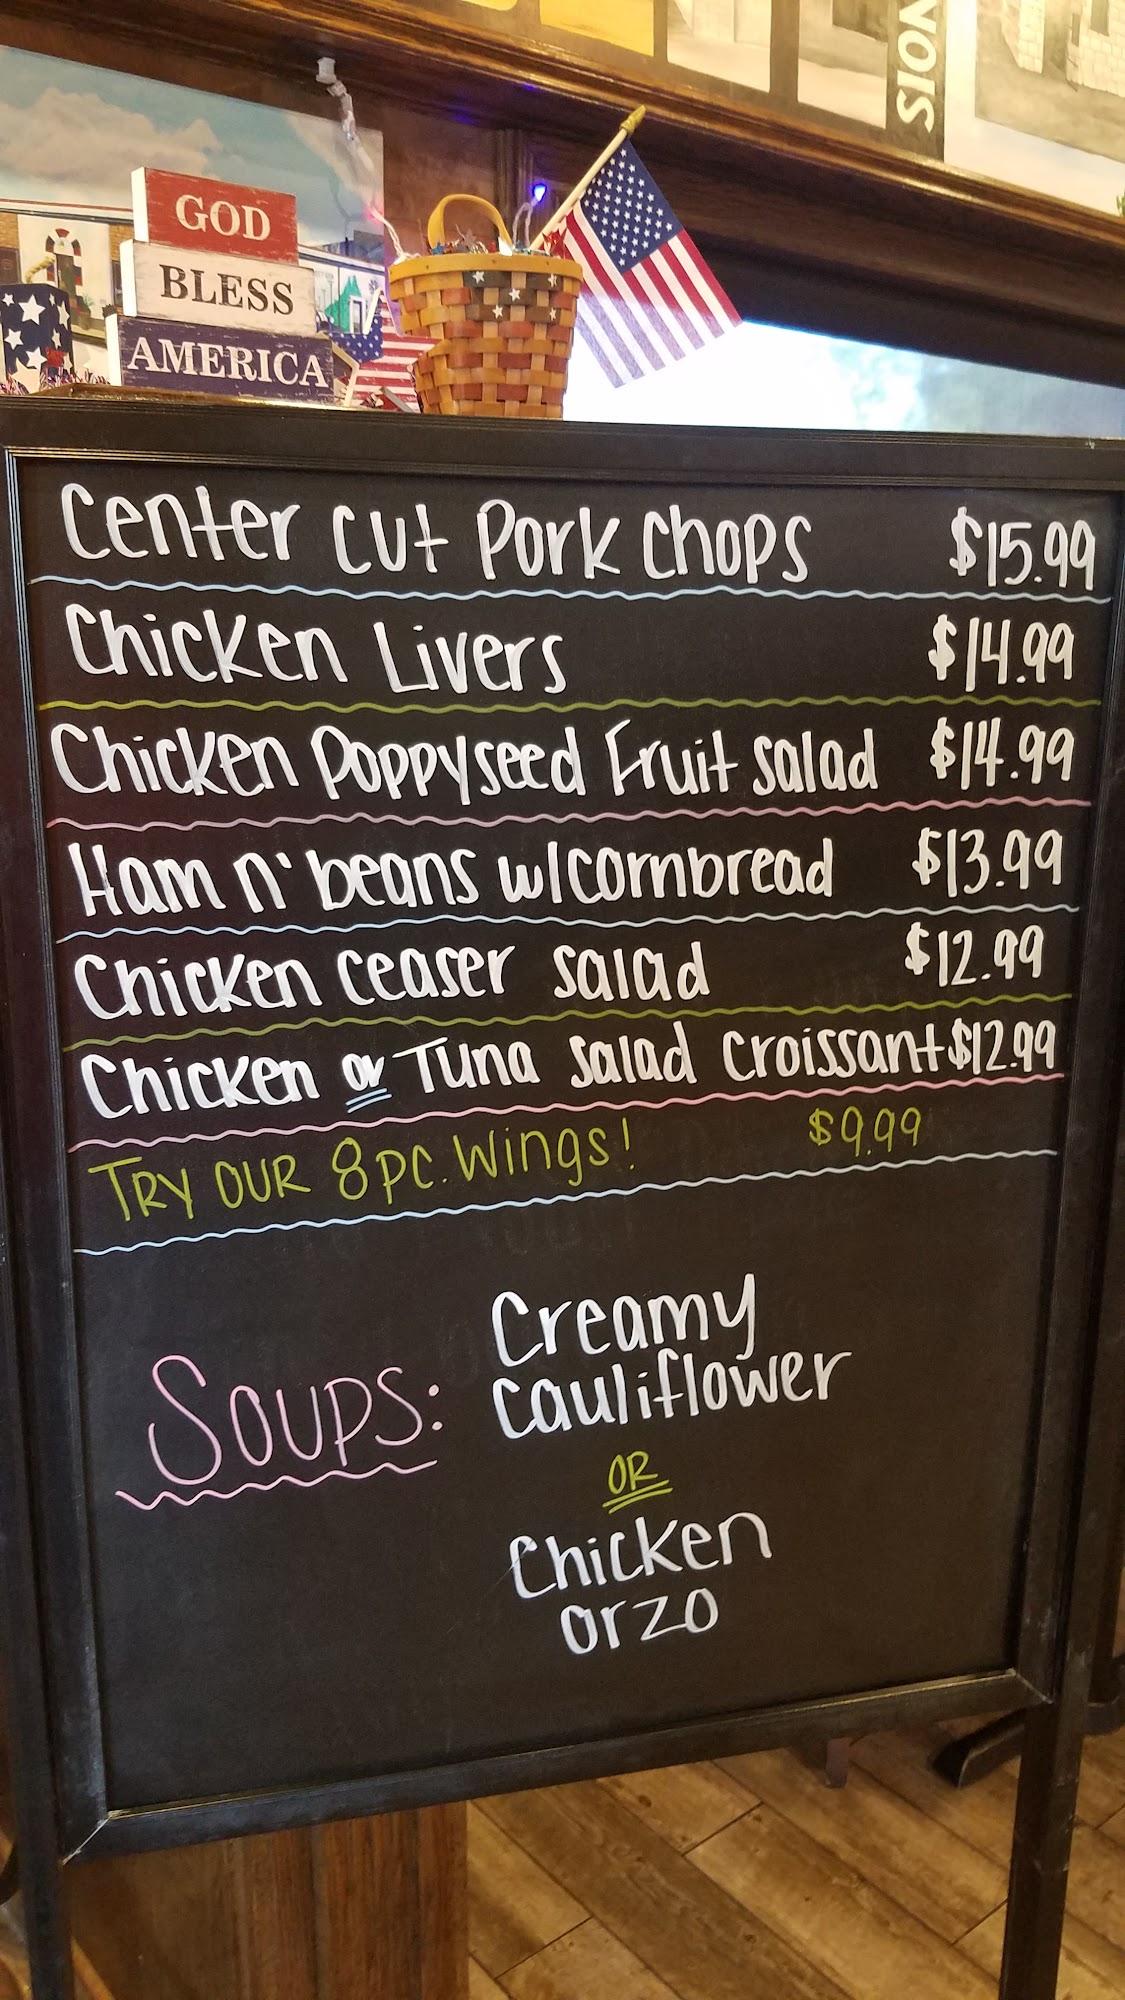 NOIS
GOD
BLESS
AMERICA
Center Cut Pork Chops $15.99
Chicken Livers $14.99
Chicken Poppyseed Fruit Salad $14.99
Ham n' beans w/cornbread $13.99
Chicken Ceaser Salad $12.99
Chicken or Tuna Salad Croissant $12.99
TRY OUR 8pc. Wings! $9.99
Soups: Creamy
Cauliflower
OR
Chicken
orzo